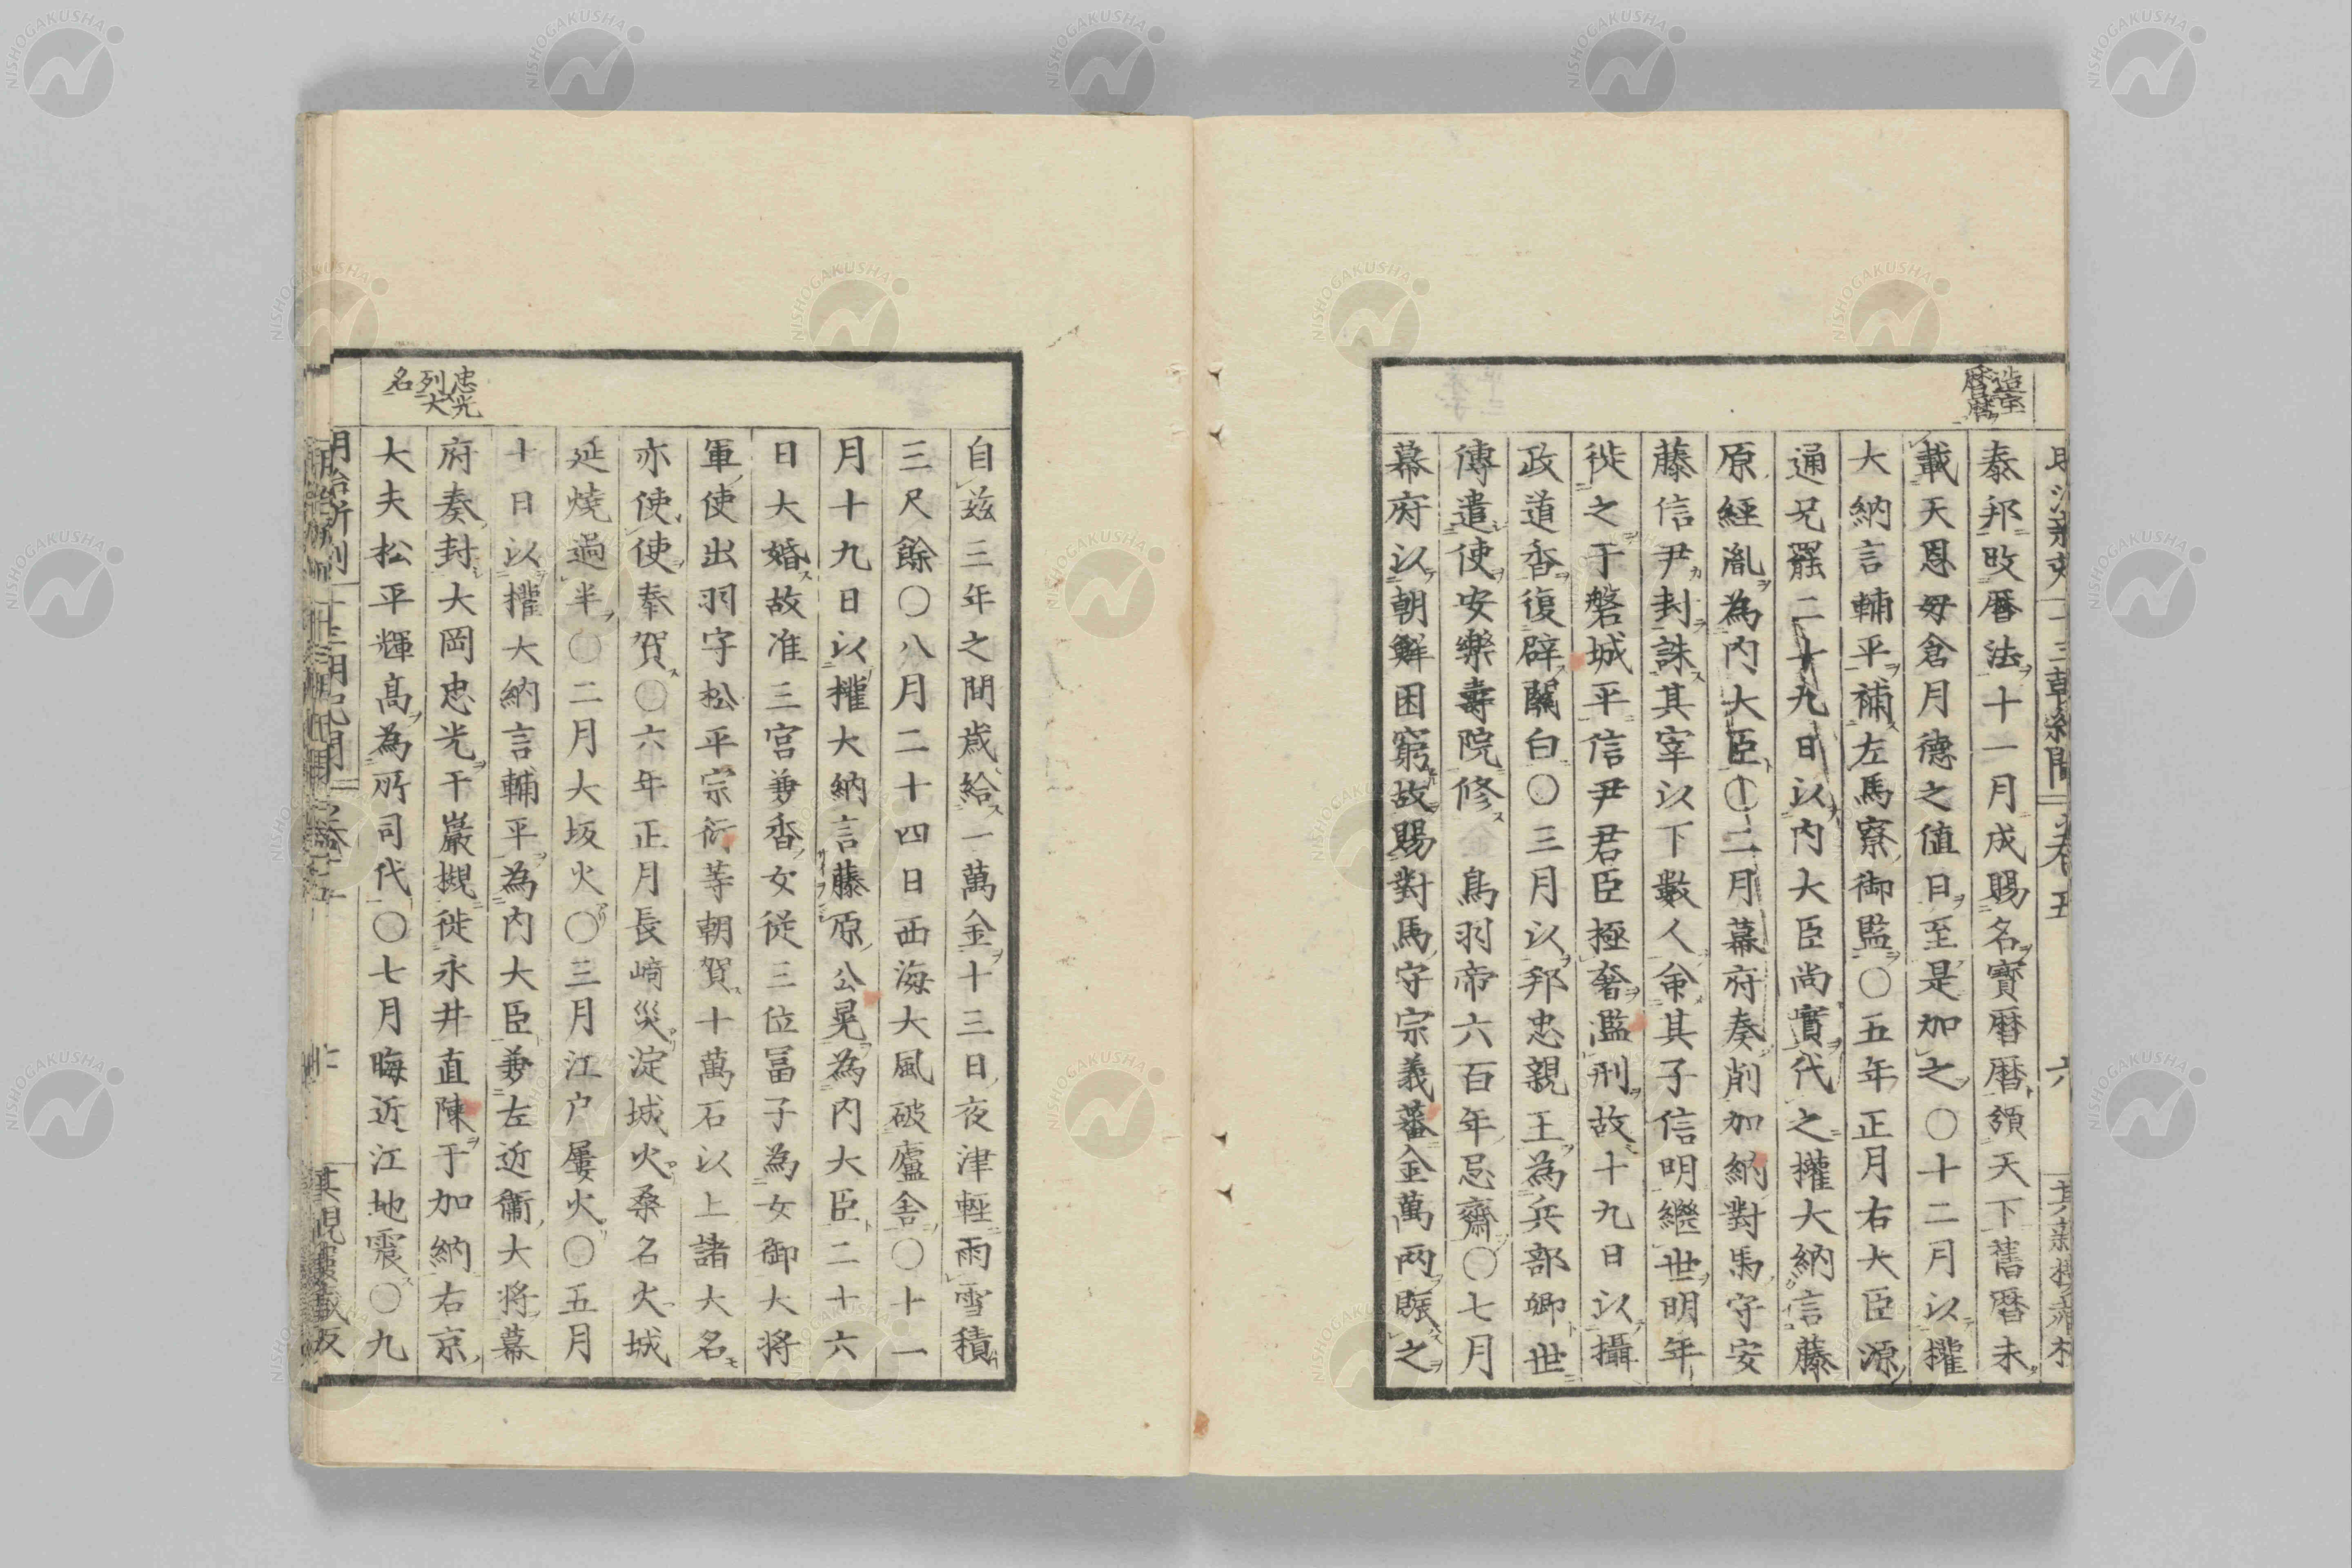 造宝
暦暦
泰邦改暦法十一月成賜名寳暦暦頒天下舊暦未
載天恩毋倉月德之値日至是加之〇十二月以權
大納言輔平補左馬寮御監〇五年正月右大臣源
通兄罷二十九日以内大臣尚實代之權大納言藤
原經胤為内大臣〇二月幕府奏削加納對馬守安
藤信尹封誅其宰以下數人命其子信明繼世明年
徙之于磐城平信尹君臣極奢濫刑故十九日以攝
政道香復辟關白〇三月以邦忠親王為兵部卿世
傳遣使安樂壽院修 鳥羽帝六百年忌齋〇七月
幕府以朝鮮困窮故賜對馬守宗義蕃金萬兩賑之
自茲三年之間歳給一萬金十三日夜津輕雨雪積
三尺餘〇八月二十四日西海大風破廬舎〇十一
月十九日以權大納言藤原公晃為内大臣二十六
日大婚故准三宮兼香女従三位冨子為女御大将
軍使出羽守松平宗衍等朝賀十萬石以上諸大名
亦使使奉賀〇六年正月長﨑災淀城火桑名火城
延燒過半〇二月大坂火〇三月江户屢火〇五月
十日以權大納言輔平為内大臣兼左近衞大将幕
府奏封大岡忠光于巖槻徙永井直陳于加納右京
大夫松平輝髙為所司代〇七月晦近江地震〇九
忠光
列大
名